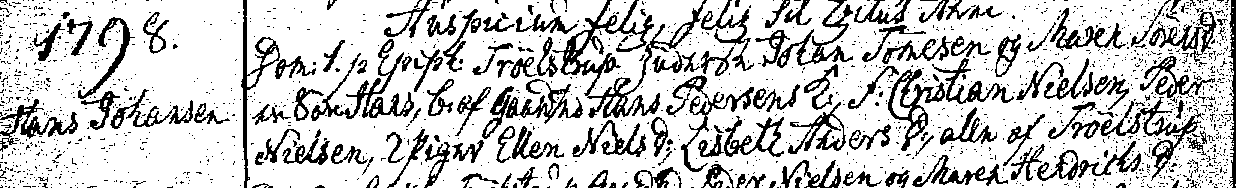 1798.
Auspicium felix, felix sit Exitus Anni.
Hans Johansen
Dom: 1. p Epiph: Tröelstrup Johan Tomesen og Maren
en Søn Hans, b: af Gaardm: Hans Pedersens F: Christian Nielsen, Peder
Nielsen, 2 Piger Ellen Niels d: Lisbeth Anders d:, alle af Tröelstrup
Nielsen og Maren Hendrichs d